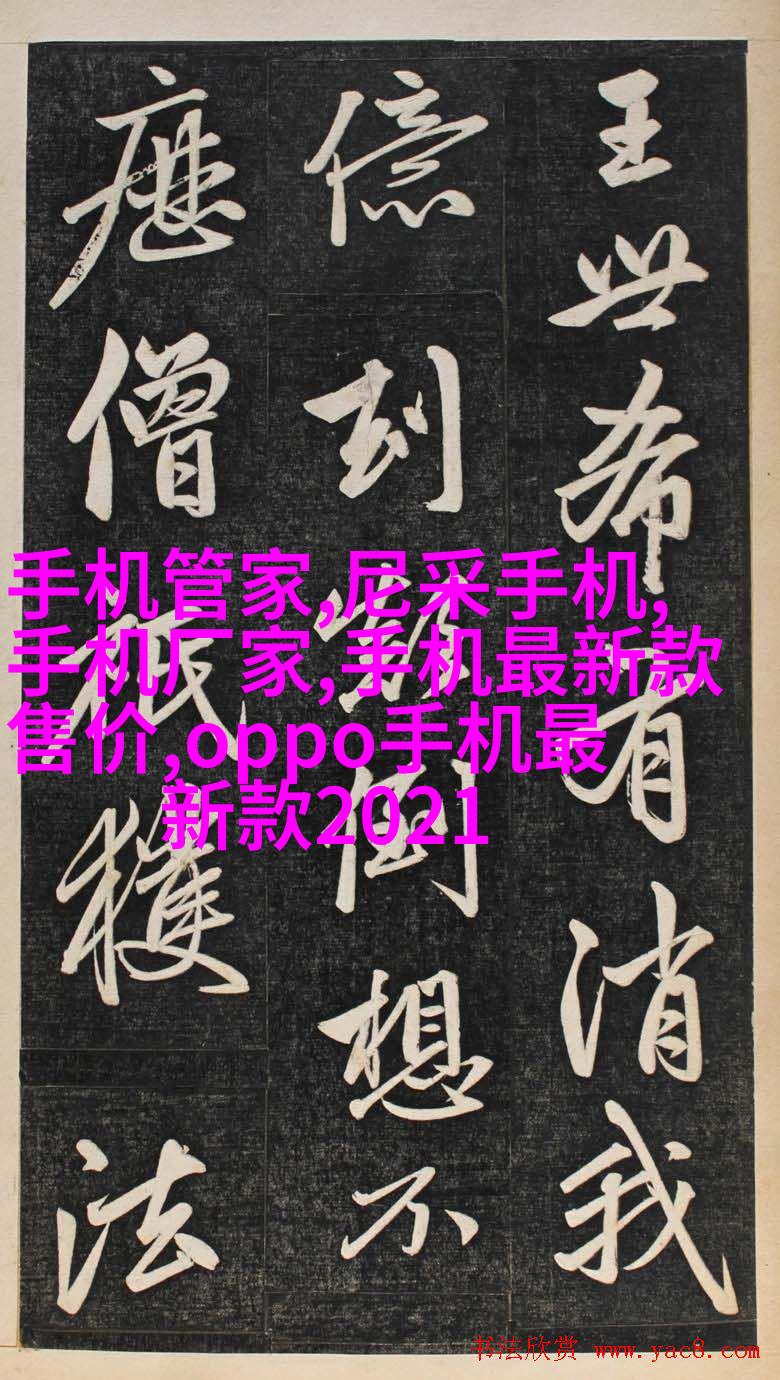 王世希有消我
億刦顛倒想不
歷僧祇獲法
手机管家,尼采手机,
手机厂家,手机最新款
售价,oppo手机最
新款2021
书法欣赏 www.yac8.com